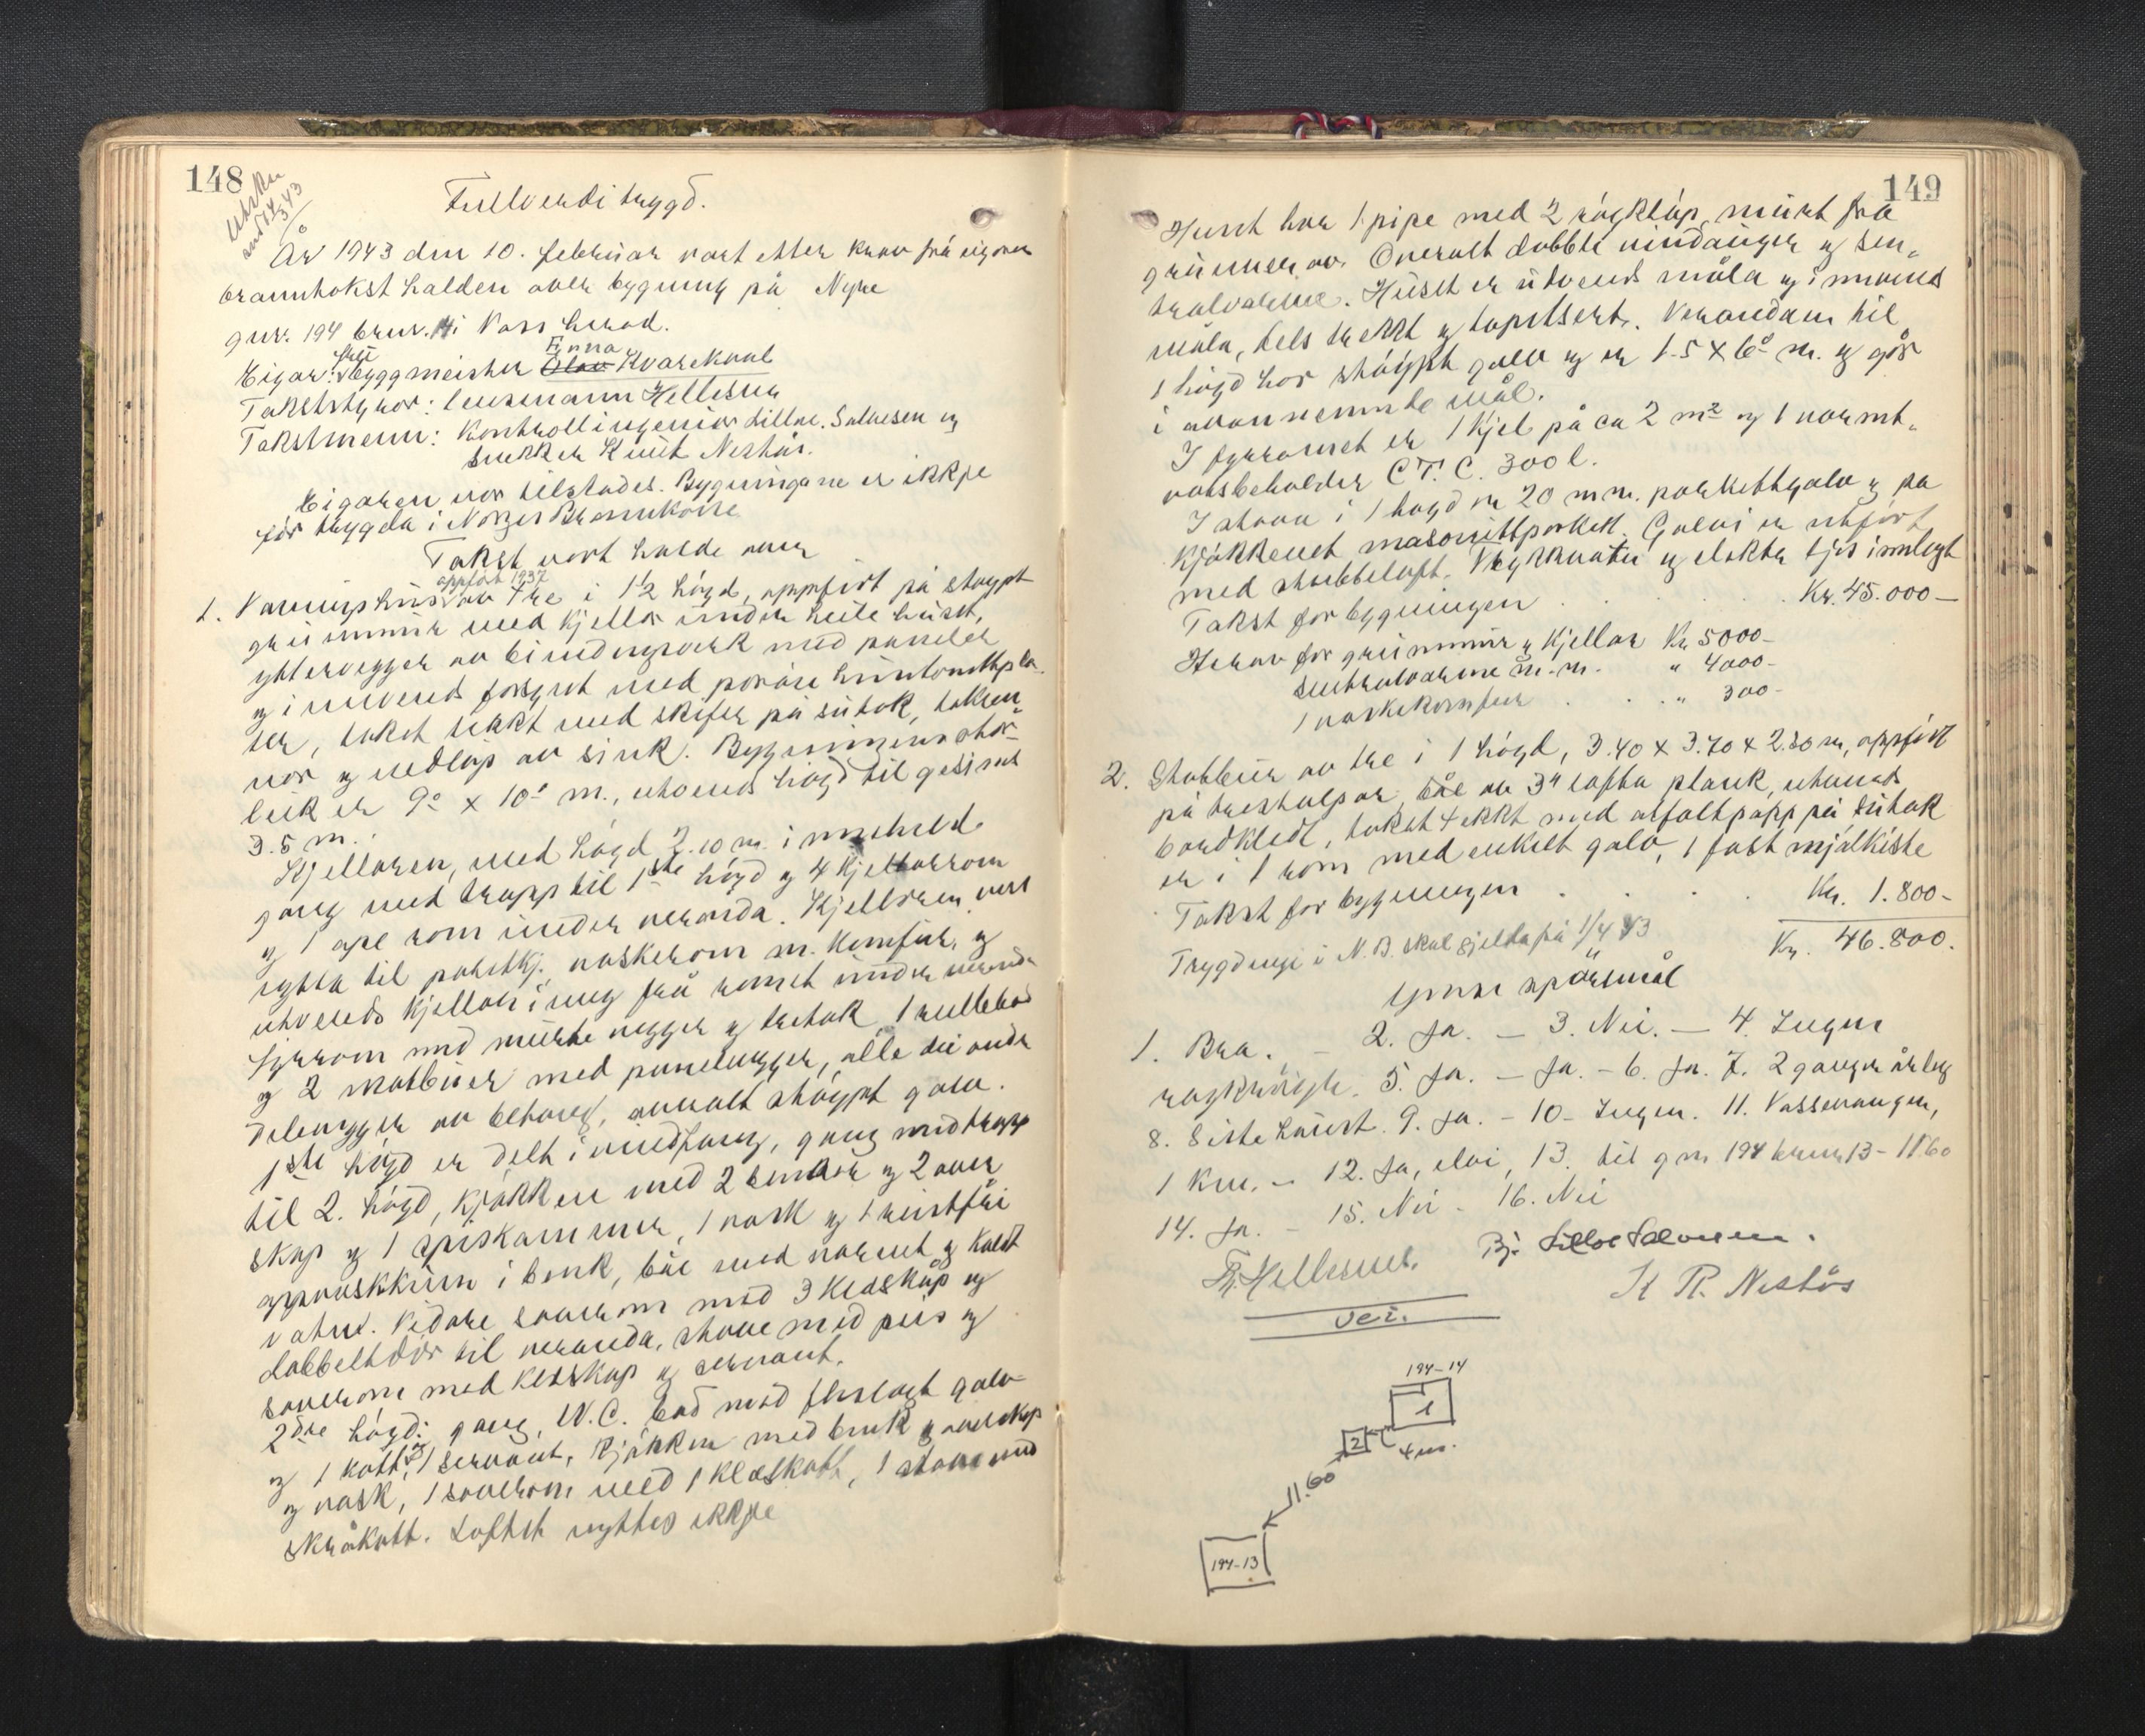 148
Utskr.
Fullverdi trygd.
År 1943 den 10. februar vart etter krav frå eigaren
branntakst halden over bygning på Nyre
gnr. 194 bnr. 14 i Voss herad.
Eigar: frü byggmeister Olav Emma Kvarekvaal
Takststyrar: lensmann Hellesnes
Takstmenn: Kontrollingeniør Lilloe-Salvesen og
snekker Knut Nestås.
Eigaren var tilstades. Bygningane er ikkje
før trygda i Norges Brannkasse
Takst vart halde over
1. Vaaningshus av tre oppført 1937 i 1½ høgd, oppført på støypt
grunnmur med kjellar under heile huset,
yttervegger av bindingsverk med paneler
og innvends forsynt med porøse huntonittpla-
ter, taket tekt med skifer på sutak, takren-
nor og nedløp av sink. Bygningens stør-
leik er 9⁰ x 10⁵ m., utvends høgd til gesims
3.5 m.
Kjellaren, med høgd 2.10 m. i
gang med trapp til 1ste høgd og 4 kjellarrom
og 1 ope rom under veranda. Kjellaren vert
nytta til potetkj., vaskerom m. komfur, og
utvends kjellarinng frå romet under veranda
fyrrom med murte vegger og tretak 1 rullebod
og 2 matbuer med panelvegger, alle dei andre
delevegger av betong, overalt støypt golv.
1ste høgd er delt i vindfang, gang med trapp
til 2. høgd, kjøkken med 2 benker og 2 over
skap og 1 spiskammer, 1 vask og 1 rustfri
oppvaskkum i benk, båe med varmt og kaldt
vatn. Vidare soverom med 3 kleskåp og
dobbeltdør til veranda, stove med peis og
soverom med kleskap og servant.
2dre høgd: gang, W.C. bad med flislagt golv
og 1 kott og 1 servant, kjøkken med benk og overskap
og vask, 1 soverom med 1 kleskott, 1 stove med
skråkott. Loftet nyttes ikkje
149
Huset har 1 pipe med 2 røykløp, murt fra
grunnen av. Overalt dobble vindauger og sen-
tralvarme. Huset er utvends måla og innvends
måla, dels trekt og tapetsert. Verandaen til
1 høgd har støypt golv og er 1.5 x 6⁰ m. og går
i ovannemnde mål.
I fyrromet er 1 kjel på ca 2 m² og 1 varmt-
vatsbeholder C.T.C. 300 l.
I stova i 1 høgd er 20 mm. parkettgolv og på
kjøkkenet masonittparkett. Golvi er utført
med stubbeloft. Trykkvatn og elektr. ljos innlagt
Takst for bygningen . . . . Kr. 45.000 —
Herav for grunnmur og kjellar Kr. 5000 -
sentralvarme m.m. " 4000 -
1 vaskekomfur . . . " 300 -
2. Stabbur av tre i 1 høgd, 3.40 x 3.70 x 2.80 m, oppført
på trestolpar, båe av 3" lafta plank, utvends
bordkledt, taket tekkt med asfaltpapp på sutak
er i 1 rom med enkelt golv, 1 fast mjølkiste
Takst for bygningen . . . Kr. 1.800 -
Trygdingi i N.B. skal gjelda frå 1/4 43 Kr. 46.800.
Ymse spørsmål
1. Bra. - 2. Ja. - 3. Nei. - 4. Ingen
5. Ja. - Ja. - 6. Ja. 7. 2 ganger årleg
8. Siste haust. 9. Ja. - 10 - Ingen. 11. Vossevangen,
1 km. - 12. Ja, elvi, 13. til gnr 194 bnr 13 - 11.60
14. Ja. - 15. Nei - 16. Nei
Hellesnes. Bj. Lilloe Salvesen.
K R. Nestås
Vei.
194-14
1
2
4 m.
11.60
194-13